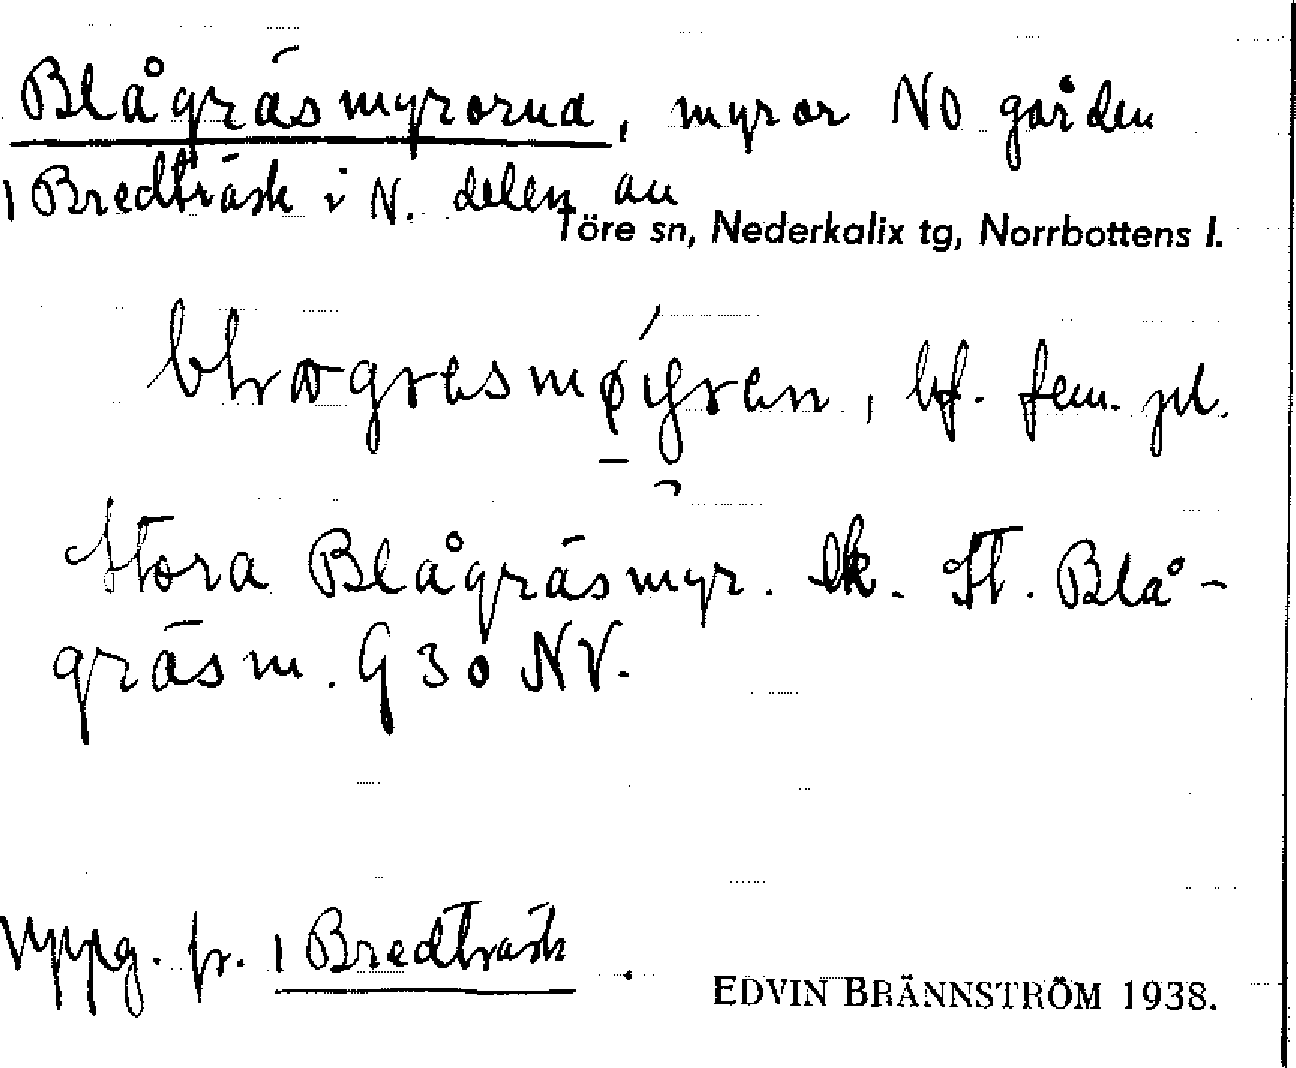 Blågräsmyrorna, myror NO gården
1 Bredträsk i N. delen av
Töre sn, Nederkalix tg, Norrbottens l.
bf. fem. pl.
Stora Blågräsmyr. Ek. St. Blå-
gräsm. G 30 NV.
Uppg. fr. 1 Bredträsk
EDVIN BRÄNNSTRÖM 1938.